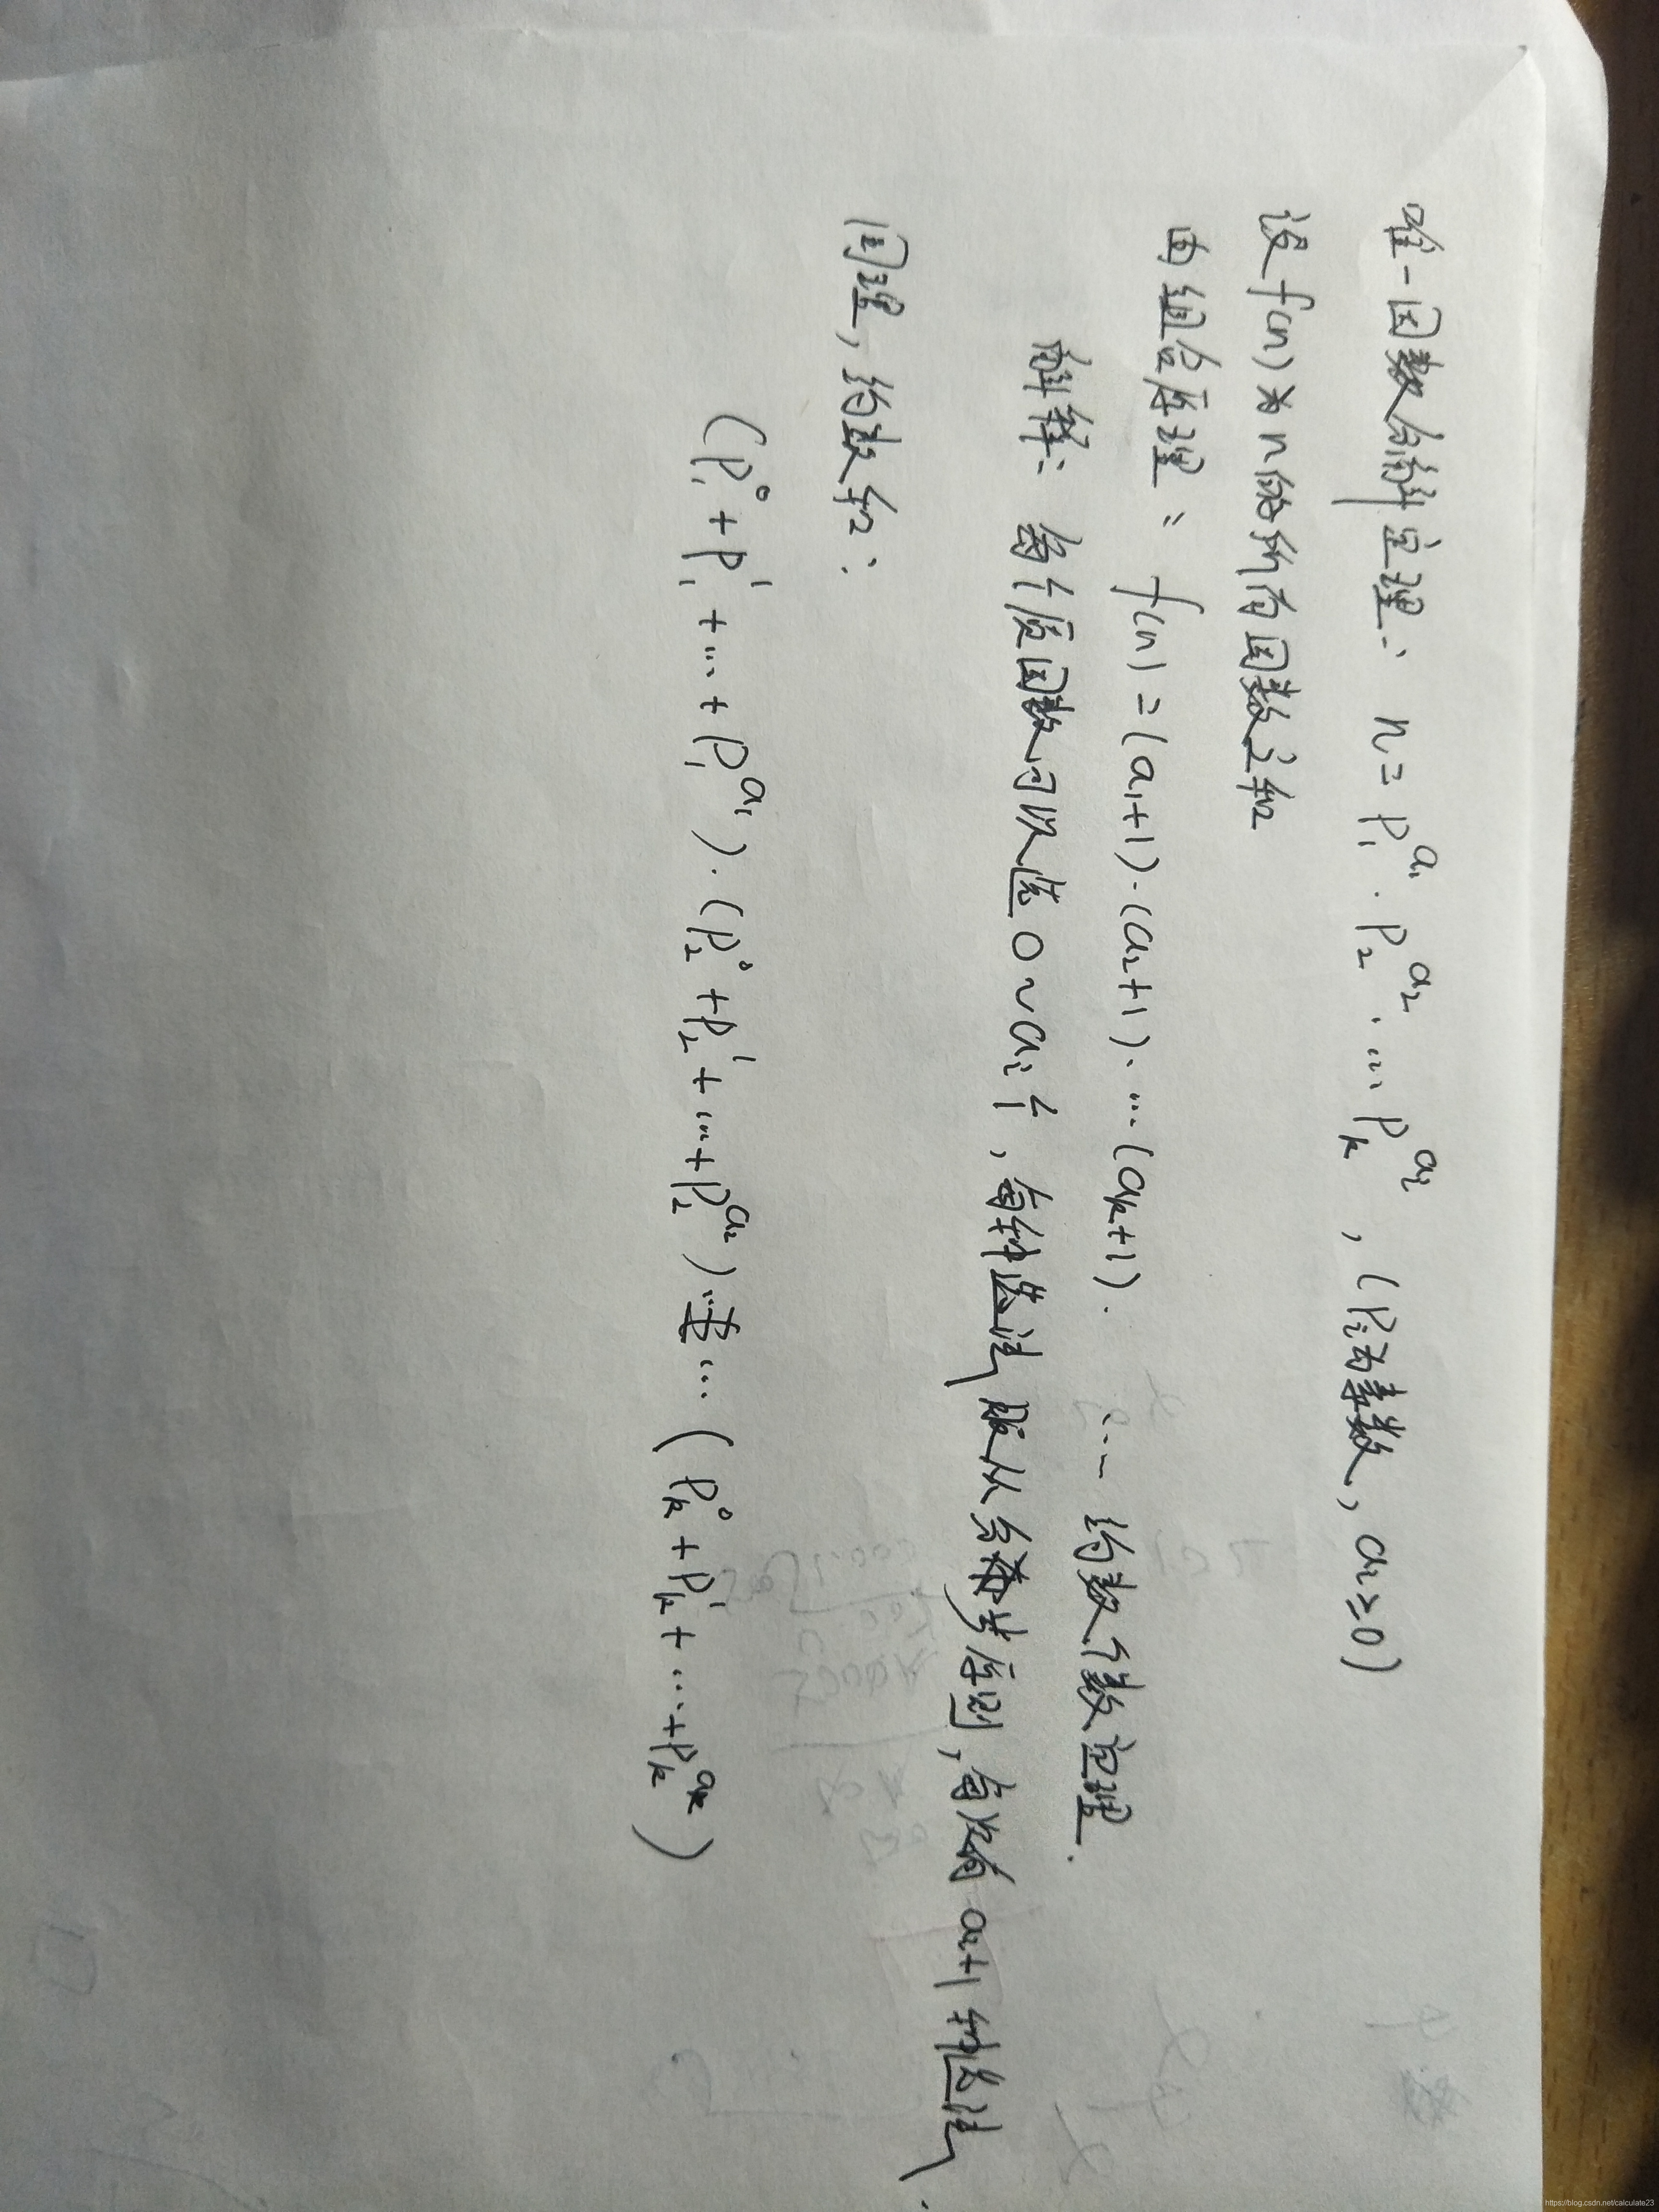 唯一因数分解定理: n = p₁^a₁ · p₂^a₂ · … p_k^a_i , (p_i为素数, a_i ≥ 0)
设 f(n) 为 n 的所有因数之和
由组合原理: f(n) = (a₁+1)·(a₂+1)·…(a_k+1). …一 约数个数定理.
解释: 每个质因数可以选 0~a_i 个, 每种选法服从分步原则, 每次有 a_i+1 种选法.
同理, 约数和:
(p₁^0 + p₁^1 + … + p₁^a₁)·(p₂^0 + p₂^1 + … + p₂^a₂)……(p_k^0 + p_k^1 + … + p_k^a_k)
https://blog.csdn.net/calculate23